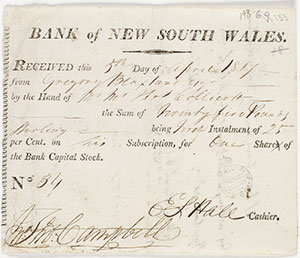 BANK of NEW SOUTH WALES.
RECEIVED this 5th Day of April 1817
from Gregory Blaxland
by the Hand of Mr Thos Collicott
the Sum of Twenty five Pounds
Sterling being first Instalment of 25
per Cent. on his Subscription, for One Share of
the Bank Capital Stock.
No 34
E S Hall Cashier.
Jno Thos Campbell